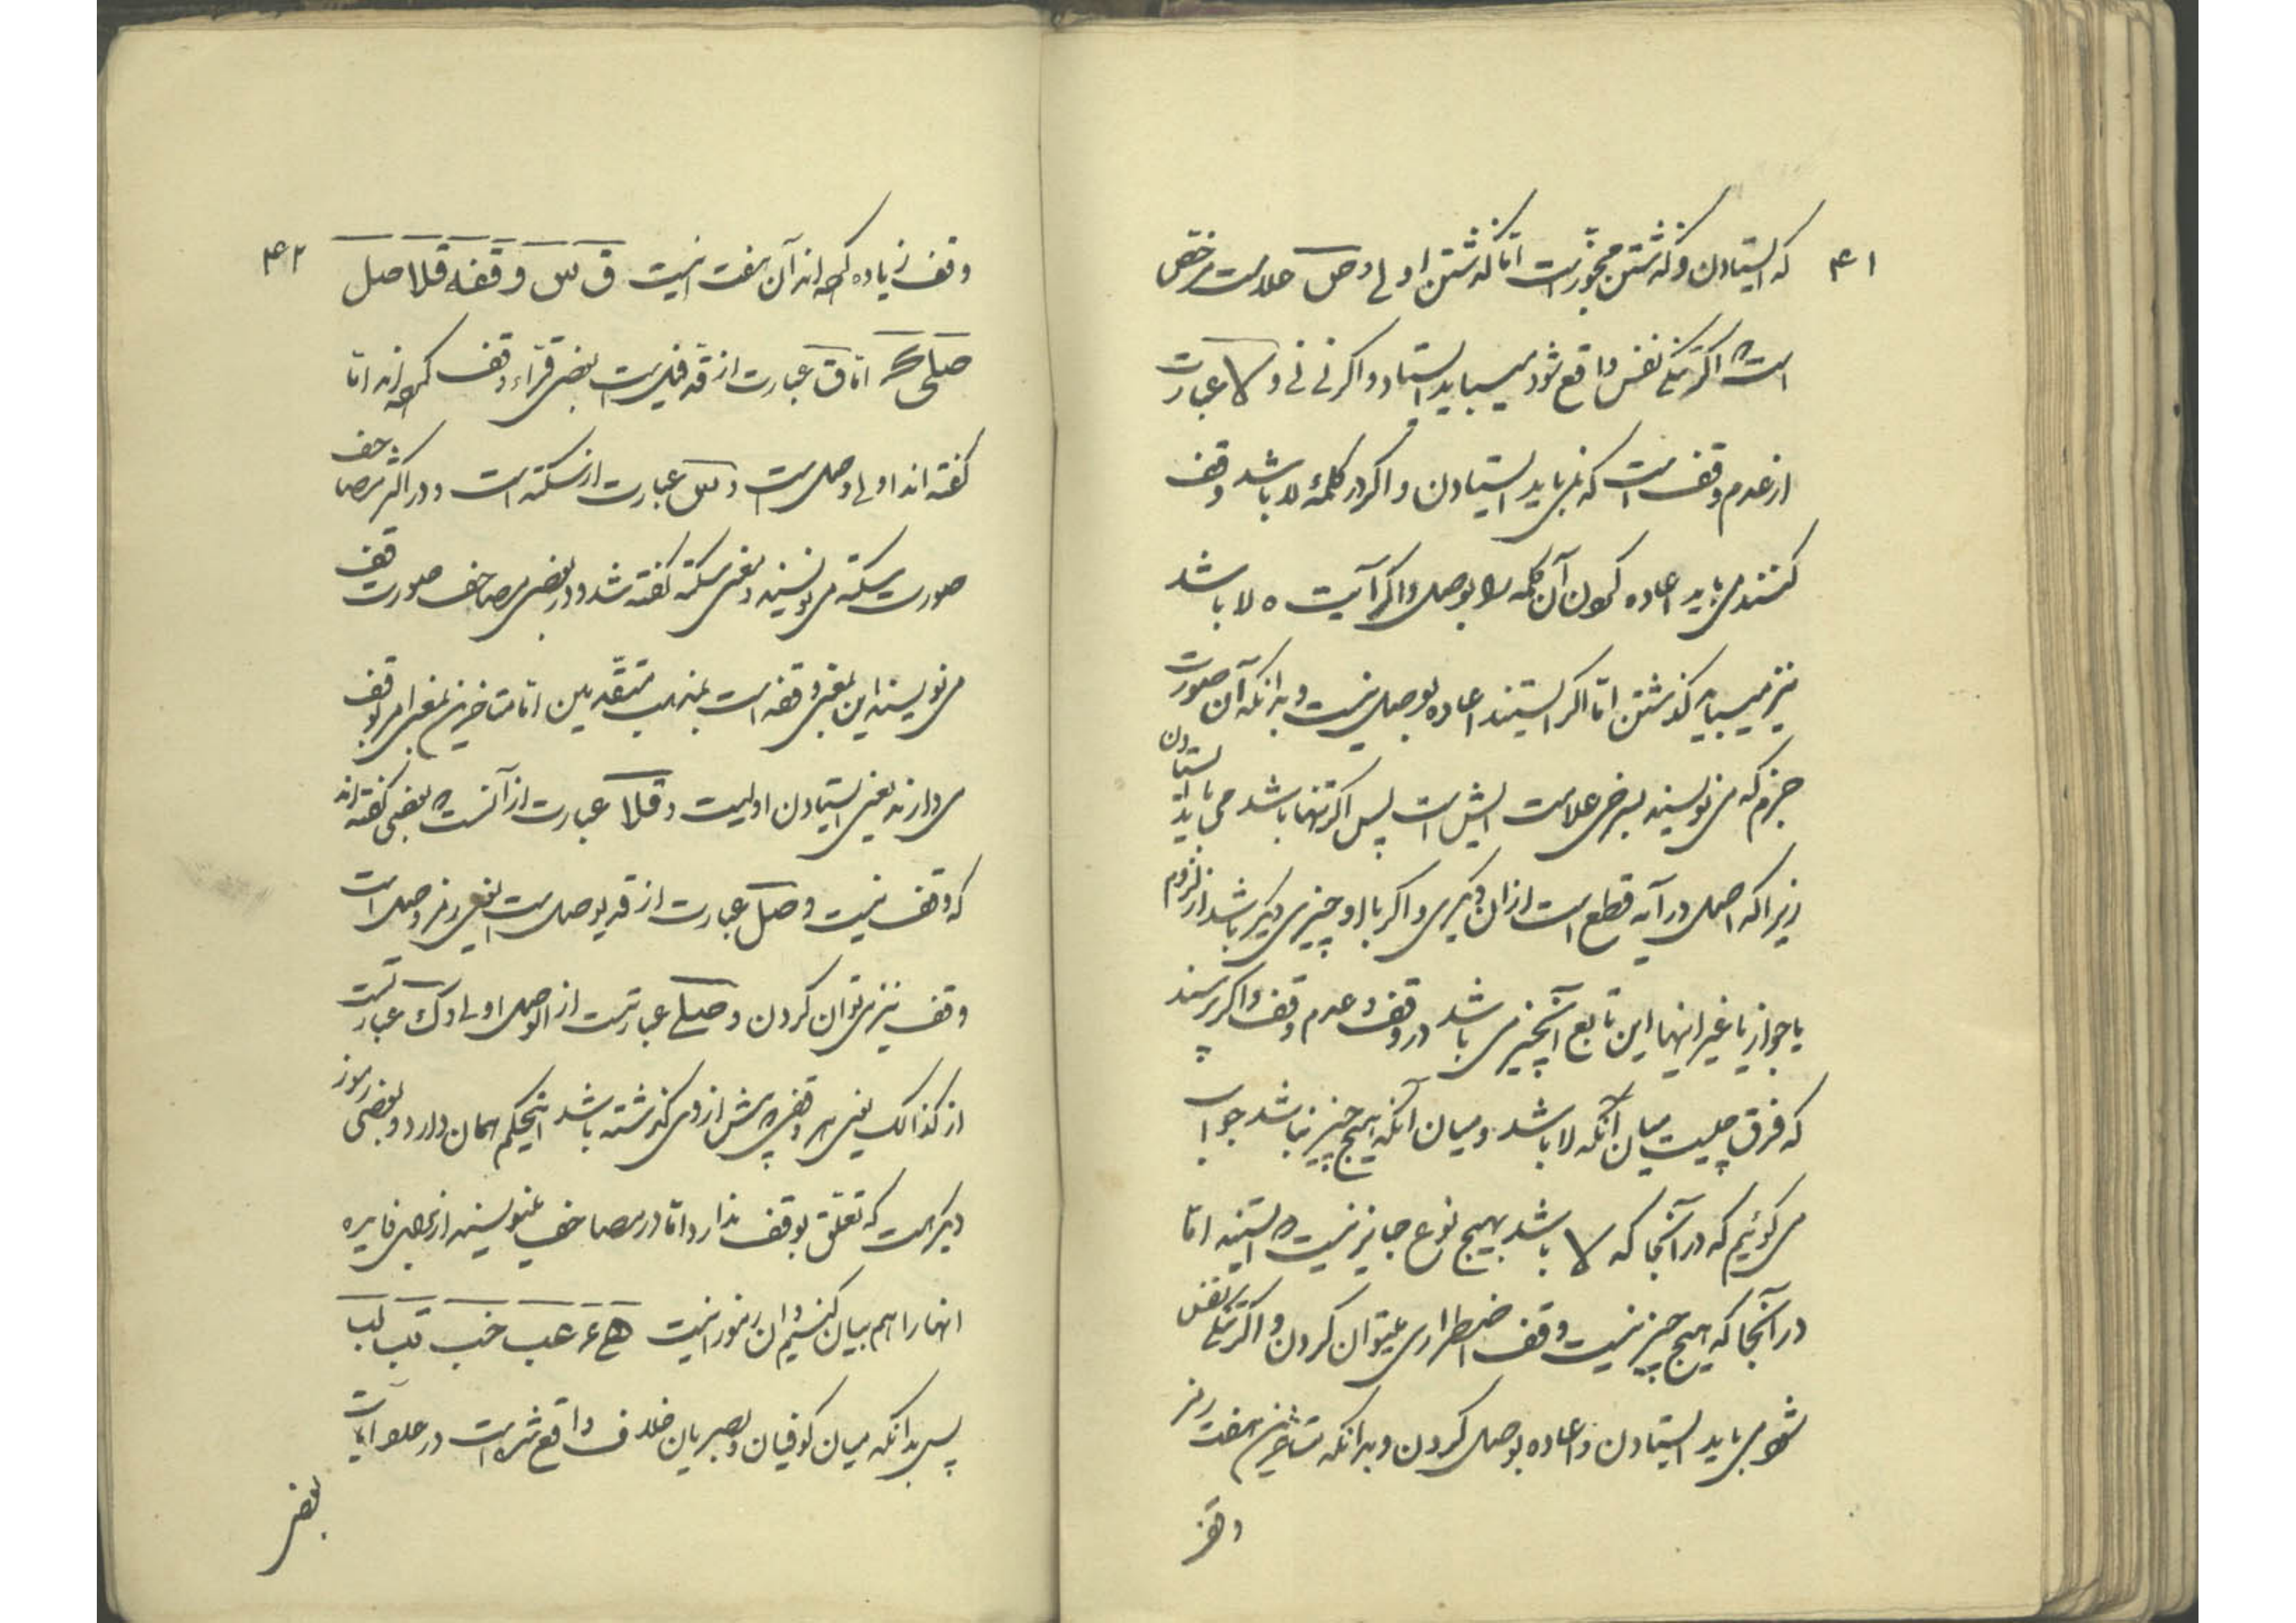 ۴۱
که ایستادن و گذشتن مجوز است اما گذشتن اولی و ص علامت مرخص
است که اگر تنگی نفس واقع شود میباید ایستاد و اگر نی نی و لا عبارت
از عدم وقف است که نمی باید ایستادن و اگر در کلمهٔ لا باشد وقف
کنند می باید اعاده کردن آن کلمه را بوصل و اگر آیت ه لا باشد
نیز میباید گذشتن اما اگر ایستند اعاده بوصل نیست و بدانکه آن صورت
جزم که می نویسند بسرخی علامت ایش است پس اگر تنها باشد می باید ایستادن
زیرا که اصل در آیه قطع است از ان دیگری و اگر بالا او چیزی دیگر باشد از لزوم
یا جواز یا غیر اینها این تابع آنچیز می باشد در وقف و عدم وقف و اگر پرسند
که فرق چیست میان آنکه لا باشد و میان آنکه هیچ چیز نباشد جواب
می گوئیم که در آنجا که لا باشد بهیچ نوع جایز نیست که ایستند اما
در آنجا که هیچ چیز نیست وقف اضطراری میتوان کردن و اگر تنگی نفس
شود می باید ایستادن و اعاده بوصل کردن و بدانکه متاخرین هفت رمز
وقف
۴۲
وقف زیاده کرده اند آن هفت اینست ق س وقفه قلا صل
صلی ک اما ق عبارت از قد قیل است بعضی قراء وقف کرده اند اما
گفته اند اولی وصل است و س عبارت از سکته است و در اکثر مصاحف
صورت سکته می نویسند و معنی سکته گفته شد و در بعضی مصاحف صورت قف
می نویسند این بمعنی وقفه است بمذهب متقدمین اما متاخرین بمعنی امر بوقف
می دارند یعنی ایستادن اولیست و قلا عبارت از آنست که بعضی گفته اند
که وقف نیست و صل عبارت از قد یوصل است یعنی رمز وصل است
وقف نیز می توان کردن و صلی عبارتست از الوصل اولی و ک عبارتست
از کذالک یعنی هر وقفی که پیش از وی گذشته باشد اینحکم همان دارد و بعضی رموز
دیگر است که تعلق بوقف ندارد اما در مصاحف مینویسند از برای فایده
انها را هم بیان کنیم و ان رموز اینست ه ع عب خب تب لب
پس بدانکه میان کوفیان و بصریان خلاف واقع شده است در عدد ایات
بعضی